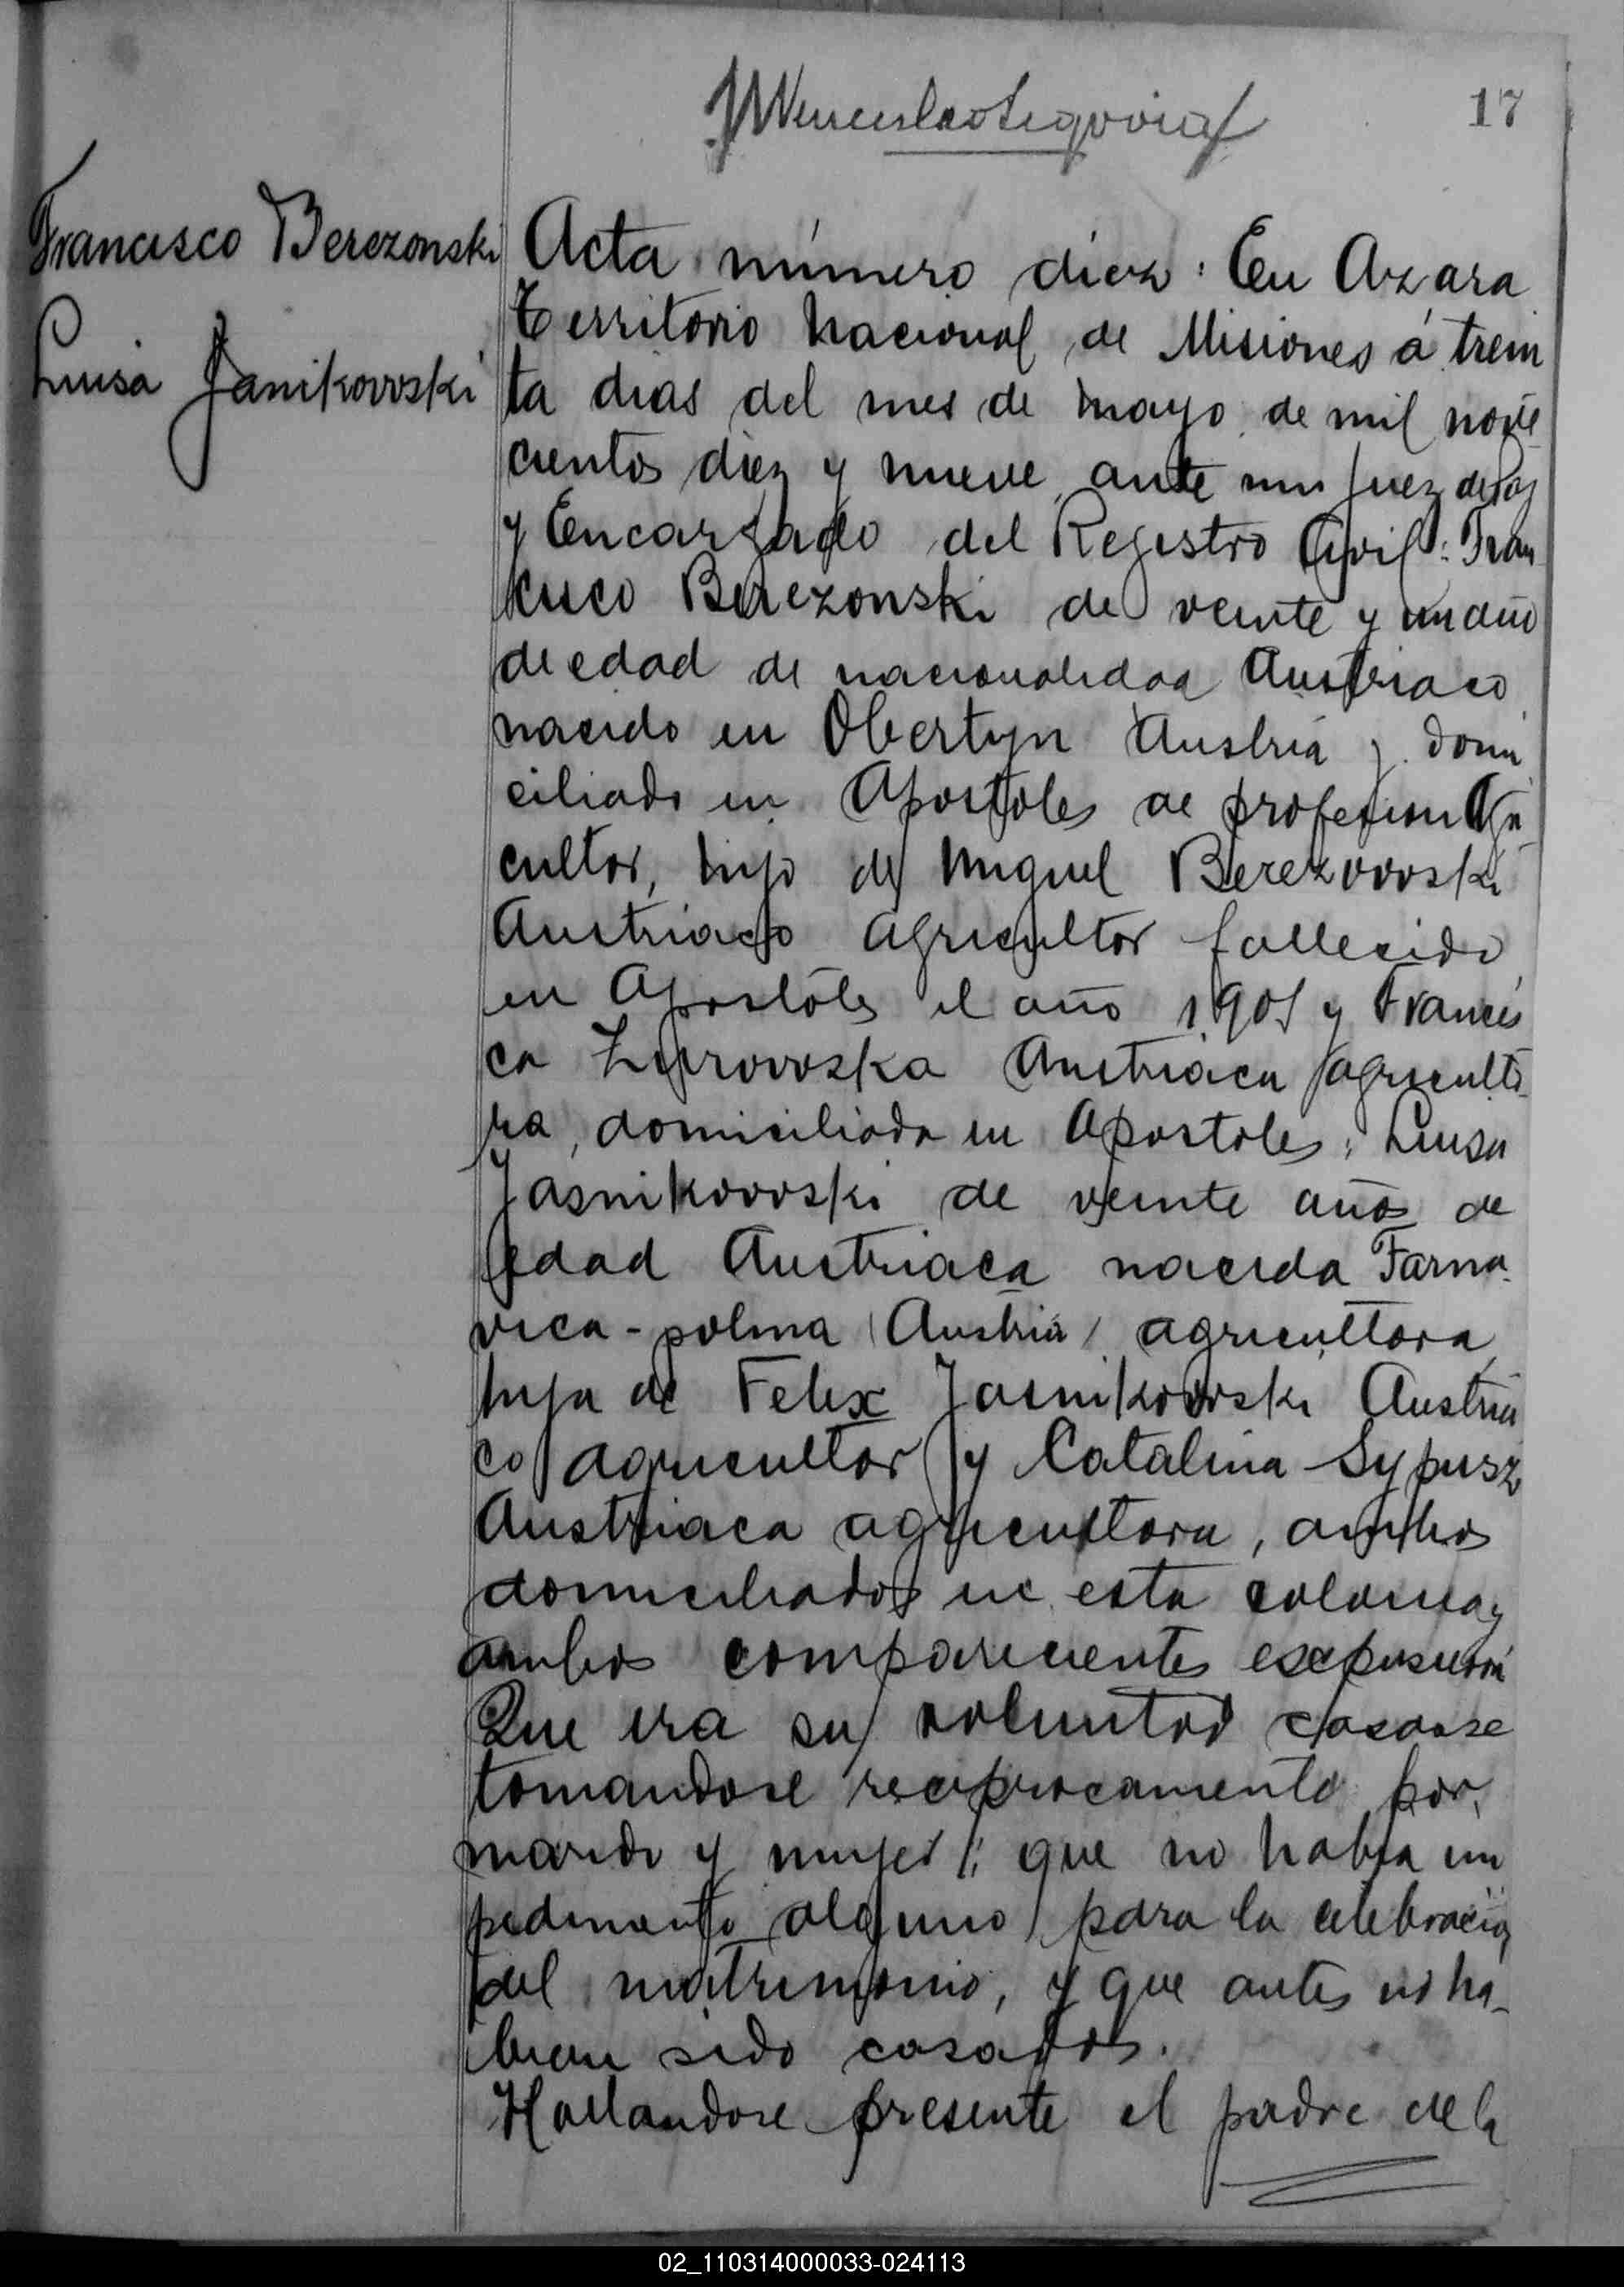 17
Francisco Berezonski
Luisa Janikowski
Acta número diez: En Azara
Territorio Nacional de Misiones á trein
ta dias del mes de mayo de mil nove
cientos diez y nueve ante mi Juez de Paz
y Encargado del Registro Civil: Fran
cisco Berezonski de veinte y un año
de edad de nacionalidad Austriaco
nacido en Obertyn Austria y domi
ciliado en Apostoles de profesion Agri
cultor, hijo de Miguel Berezowski
Austriaco agricultor fallecido
en Apostoles el año y Francis
ca Austriaca agriculto
ra, domiciliada en Apostoles; Luisa
Jasnikowski de veinte años de
edad Austriaca nacida Tarna
vica-polna (Austria) agricultora
hija de Felix Jasnikowski Austria
co agricultor y Catalina Sypusz
Austriaca agricultora, ambos
domiciliados en esta colonia y
ambos comparecientes expusieron
Que era su voluntad casarse
tomandose reciprocamente por
marido y mujer; que no habia im
pedimento alguno para la celebracion
del matrimonio, y que antes no ha-
bian sido casados.
Hallandose presente el padre de la
02_110314000033-024113